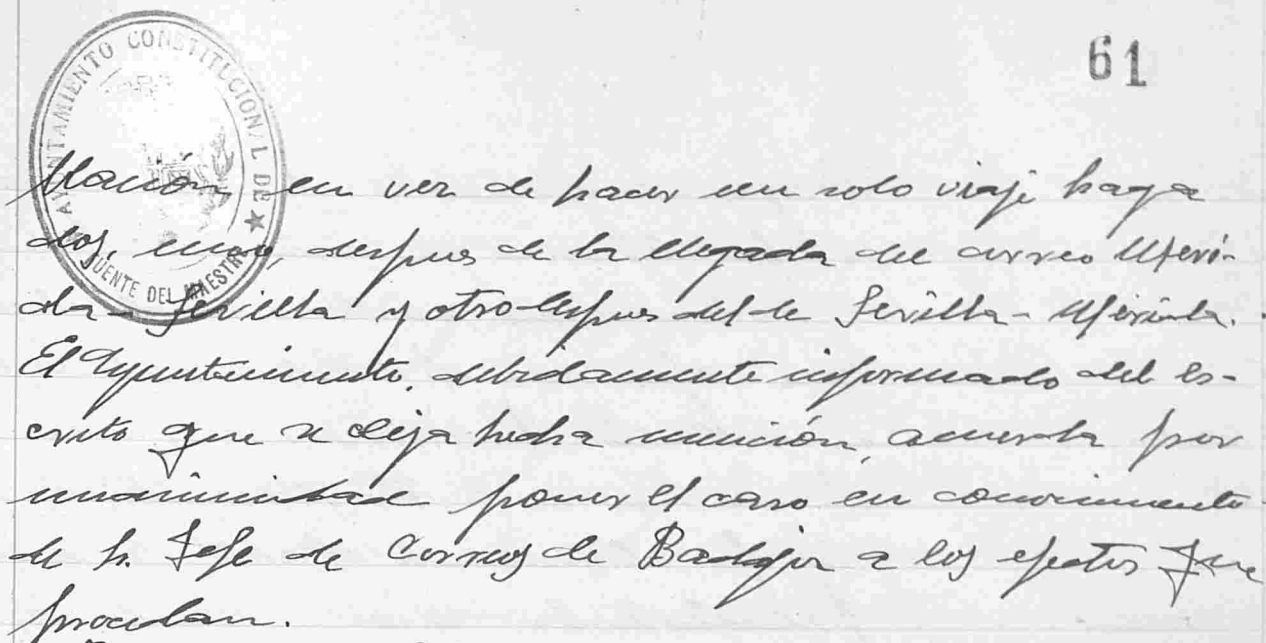 61
AYUNTAMIENTO CONSTITUCIONAL DE ★ FUENTE DEL MAESTRE
en vez de hacer un solo viaje haga
dos, uno, despues de la llegada del correo Meri-
da-Sevilla y otro despues del de Sevilla-Merida.
El Ayuntamiento, debidamente informado del es-
crito que se deja hecha mención, acuerda por
unanimidad poner el caso en conocimiento
de Sr. Jefe de Correos de Badajoz a los efectos que
procedan.